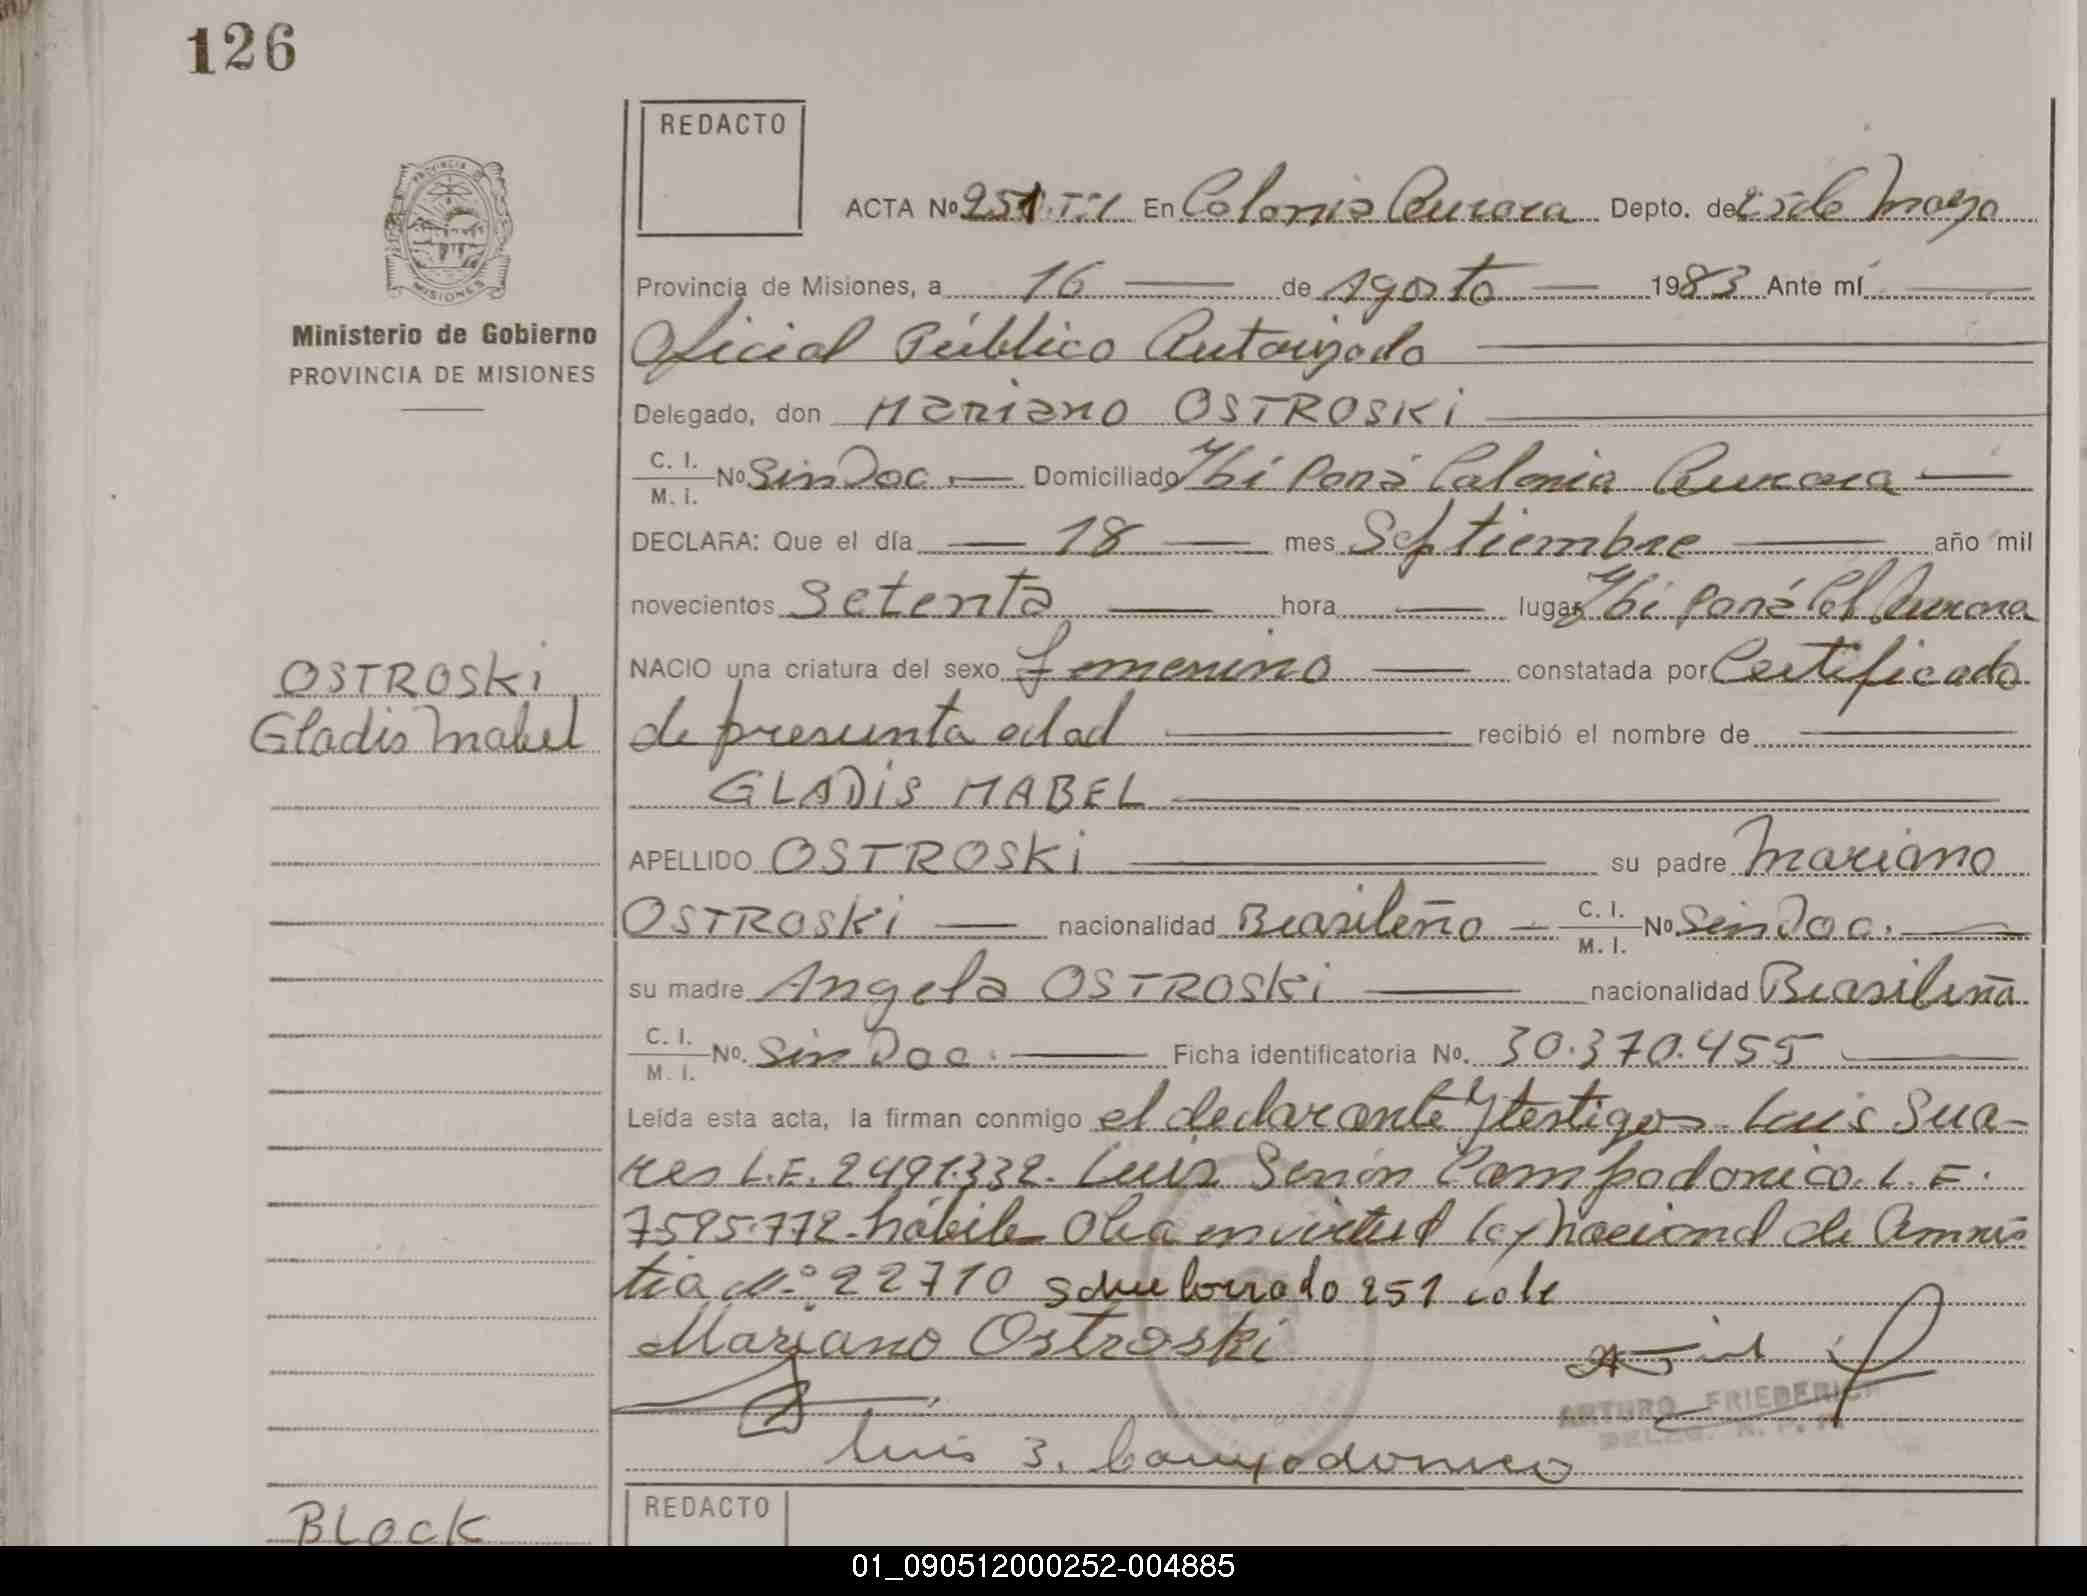 126
REDACTO
PROVINCIA DE
MISIONES
Ministerio de Gobierno
PROVINCIA DE MISIONES
ACTA Nº 251.TII En Colonia Aurora Depto. de 25 de Mayo
Provincia de Misiones, a 16 de Agosto 1983 Ante mí
Oficial Público Autorizado
Delegado, don Mariano OSTROSKi
C. I. / M. I. Nº Sin Doc. Domiciliado Ybí Paná Colonia Aurora
DECLARA: Que el día 18 mes Septiembre año mil
novecientos setenta hora lugar Ybí Paná Col Aurora
OSTROSKi
Gladis Mabel
NACIO una criatura del sexo femenino constatada por Certificado
de presunta edad recibió el nombre de
GLADiS MABEL
APELLIDO OSTROSKi su padre Mariano
OSTROSKi nacionalidad Brasileño C. I. / M. I. Nº Sin Doc.
su madre Angela OSTROSKi nacionalidad Brasileña
C. I. / M. I. Nº. Sin Doc. Ficha identificatoria Nº. 30.370.455
Leída esta acta, la firman conmigo el declarante y testigos Luis Sua-
res L.E. 2491.332. Luis Senón Campodonico. L.E.
7595.772. hábiles en virtud ley Nacional de Amnis
tia Nº 22710 sobre borrado 251 vale
Mariano Ostroski
ARTURO FRIEDERICH
DELEG. R. P.
Luis S. Campodonico
BLOCK
REDACTO
01_090512000252-004885